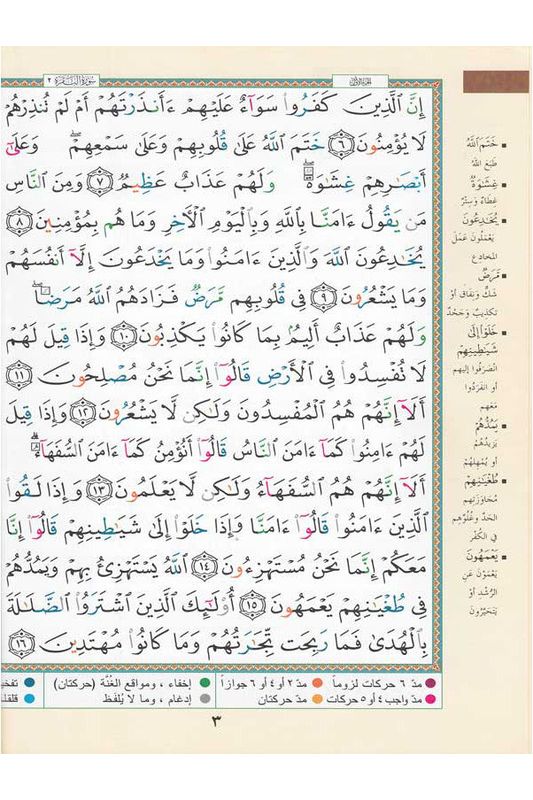 سورة البقرة ٢
الجزء الأول
إِنَّ ٱلَّذِينَ كَفَرُوا۟ سَوَآءٌ عَلَيْهِمْ ءَأَنذَرْتَهُمْ أَمْ لَمْ تُنذِرْهُمْ
لَا يُؤْمِنُونَ ٦ خَتَمَ ٱللَّهُ عَلَىٰ قُلُوبِهِمْ وَعَلَىٰ سَمْعِهِمْ ۖ وَعَلَىٰٓ
أَبْصَٰرِهِمْ غِشَٰوَةٌ ۖ وَلَهُمْ عَذَابٌ عَظِيمٌ ٧ وَمِنَ ٱلنَّاسِ
مَن يَقُولُ ءَامَنَّا بِٱللَّهِ وَبِٱلْيَوْمِ ٱلْءَاخِرِ وَمَا هُم بِمُؤْمِنِينَ ٨
يُخَٰدِعُونَ ٱللَّهَ وَٱلَّذِينَ ءَامَنُوا۟ وَمَا يَخْدَعُونَ إِلَّآ أَنفُسَهُمْ
وَمَا يَشْعُرُونَ ٩ فِى قُلُوبِهِم مَّرَضٌ فَزَادَهُمُ ٱللَّهُ مَرَضًا ۖ
وَلَهُمْ عَذَابٌ أَلِيمٌۢ بِمَا كَانُوا۟ يَكْذِبُونَ ١٠ وَإِذَا قِيلَ لَهُمْ
لَا تُفْسِدُوا۟ فِى ٱلْأَرْضِ قَالُوٓا۟ إِنَّمَا نَحْنُ مُصْلِحُونَ ١١
أَلَآ إِنَّهُمْ هُمُ ٱلْمُفْسِدُونَ وَلَٰكِن لَّا يَشْعُرُونَ ١٢ وَإِذَا قِيلَ
لَهُمْ ءَامِنُوا۟ كَمَآ ءَامَنَ ٱلنَّاسُ قَالُوٓا۟ أَنُؤْمِنُ كَمَآ ءَامَنَ ٱلسُّفَهَآءُ ۗ
أَلَآ إِنَّهُمْ هُمُ ٱلسُّفَهَآءُ وَلَٰكِن لَّا يَعْلَمُونَ ١٣ وَإِذَا لَقُوا۟
ٱلَّذِينَ ءَامَنُوا۟ قَالُوٓا۟ ءَامَنَّا وَإِذَا خَلَوْا۟ إِلَىٰ شَيَٰطِينِهِمْ قَالُوٓا۟ إِنَّا
مَعَكُمْ إِنَّمَا نَحْنُ مُسْتَهْزِءُونَ ١٤ ٱللَّهُ يَسْتَهْزِئُ بِهِمْ وَيَمُدُّهُمْ
فِى طُغْيَٰنِهِمْ يَعْمَهُونَ ١٥ أُو۟لَٰٓئِكَ ٱلَّذِينَ ٱشْتَرَوُا۟ ٱلضَّلَٰلَةَ
بِٱلْهُدَىٰ فَمَا رَبِحَت تِّجَٰرَتُهُمْ وَمَا كَانُوا۟ مُهْتَدِينَ ١٦
خَتَمَ اللَّهُ
طَبَعَ اللهُ
غِشَاوَةٌ
غِطَاءٌ وَسِتْرٌ
يُخَادِعُونَ
يَعْمَلُونَ عَمَلَ
المخادع
مَرَضٌ
شَكٌّ ونِفَاق أوْ
تكذيبٌ وَجَحْدٌ
خَلَوْا إِلَىٰ
شَيَاطِينِهِمْ
انصَرَفُوا إليهم
أو انفَرَدُوا
مَعَهم
يَمُدُّهُمْ
يَزيدُهُمْ
أو يُمْهِلُهُمْ
طُغْيَانِهِمْ
مُجَاوَزَتِهم
الحدّ وغُلُوِّهم
في الكُفْرِ
يَعْمَهُونَ
يَعْمَوْنَ عَنِ
الرُّشْدِ أوْ
يَتَحيَّرُونَ
مدّ ٦ حركات لزوماً
مدّ ٢ أو ٤ أو ٦ جوازاً
إخفاء ، ومواقع الغُنَّة (حركتان)
تفخي
مدّ واجب ٤ أو ٥ حركات
مدّ حركتان
إدغام ، وما لا يُلفَظ
قلقلة
٣